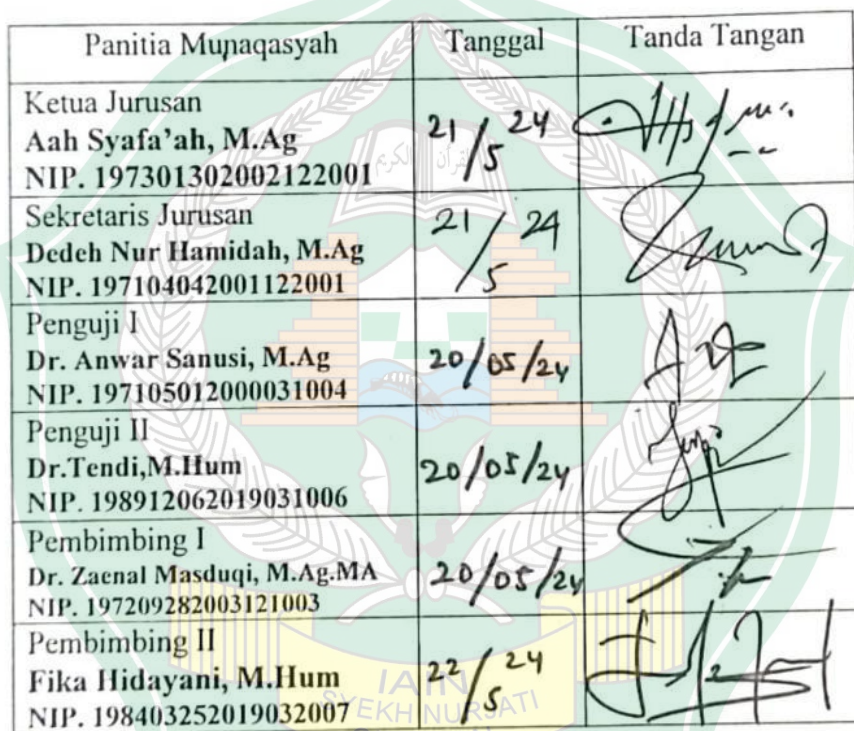 Panitia Munaqasyah Tanggal Tanda Tangan
Ketua Jurusan
Aah Syafa'ah, M.Ag
NIP. 197301302002122001
21/5 24
Sekretaris Jurusan
Dedeh Nur Hamidah, M.Ag
NIP. 197104042001122001
21/5 24
Penguji I
Dr. Anwar Sanusi, M.Ag
NIP. 197105012000031004
20/05/24
Penguji II
Dr.Tendi,M.Hum
NIP. 198912062019031006
20/05/24
Pembimbing I
Dr. Zaenal Masduqi, M.Ag.MA
NIP. 197209282003121003
20/05/24
Pembimbing II
Fika Hidayani, M.Hum
NIP. 198403252019032007
22/5 24
القرآن الكريم
IAIN
SYEKH NURJATI